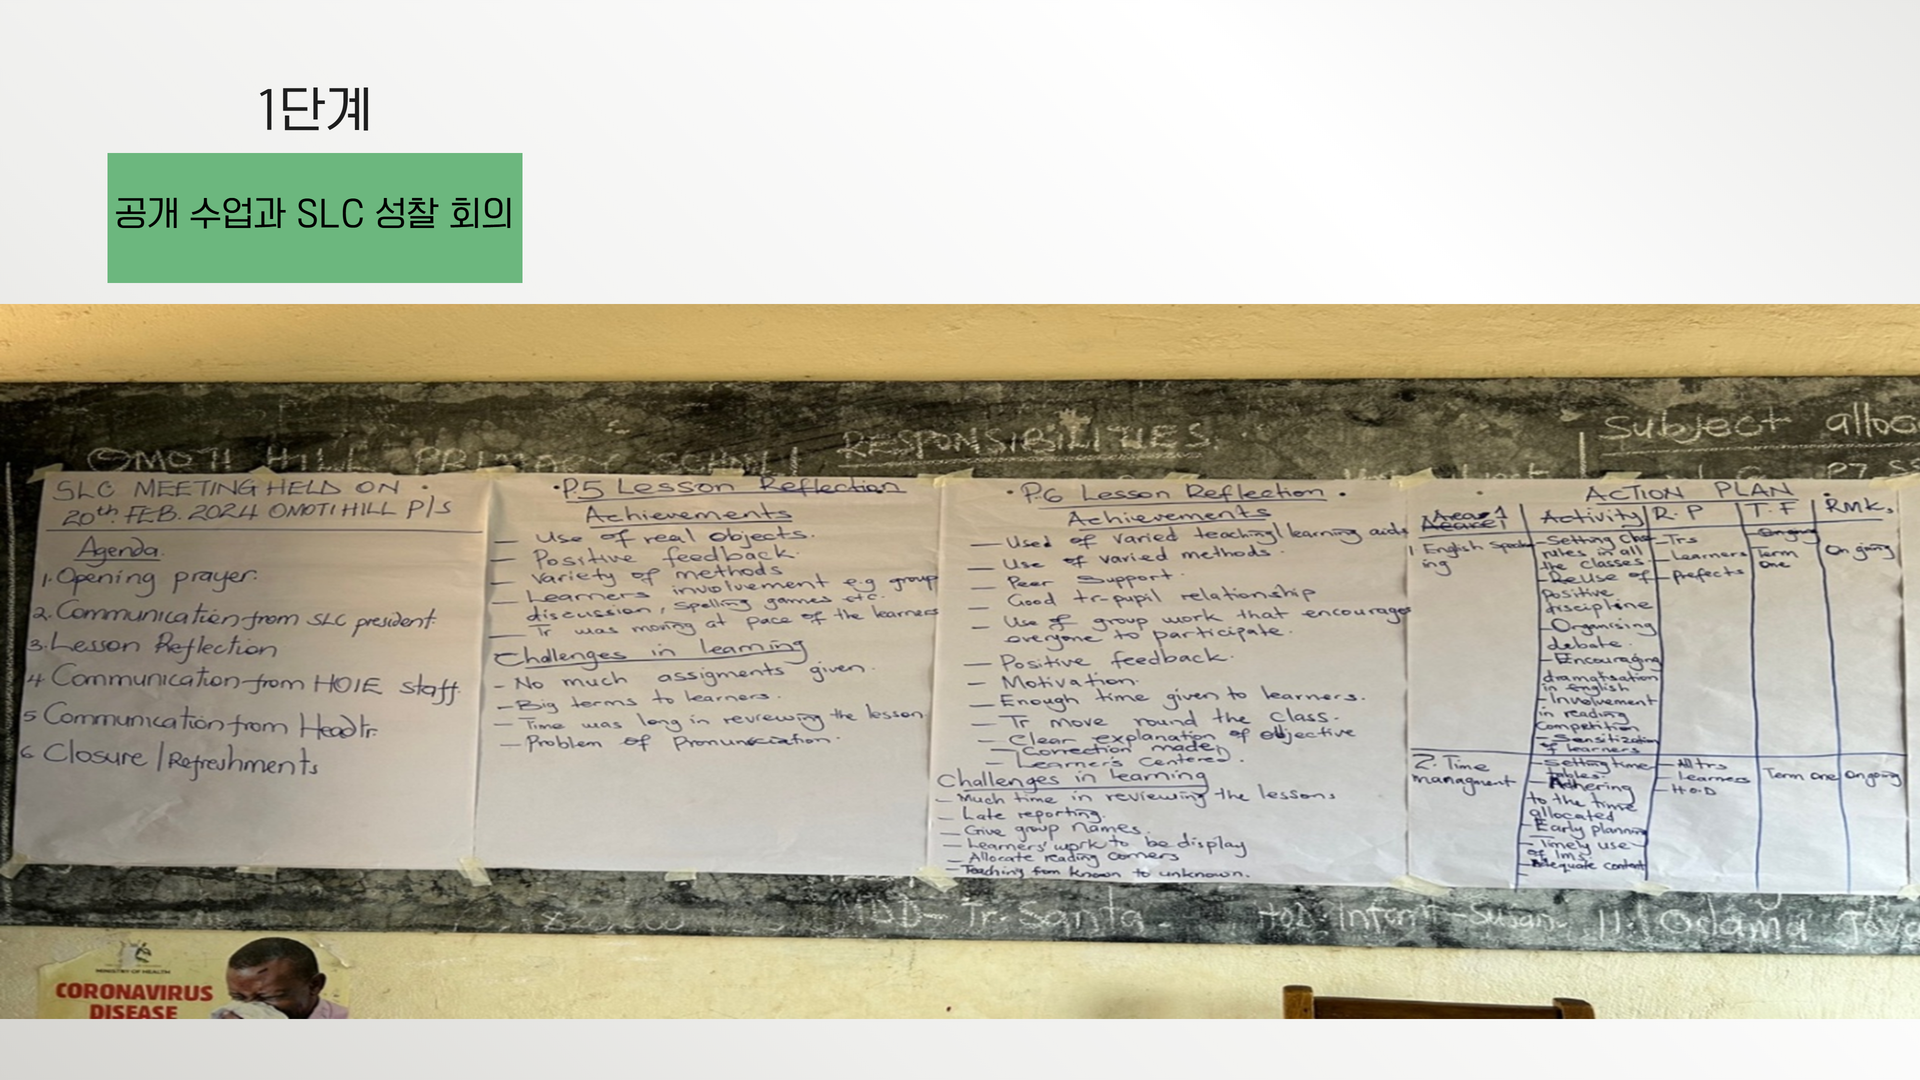 1단계
공개 수업과 SLC 성찰 회의
OMOTI HILL PRIMARY SCHOOL
RESPONSIBILITIES.
Subject alloc
P7
SLC MEETING HELD ON
20th. FEB. 2024 OMOTI HILL P/S
Agenda.
1. Opening prayer.
2. Communication from SLC president.
3. Lesson Reflection
4 Communication from HOIE staff.
5 Communication from Headtr.
6 Closure / Refreshments
P.5 Lesson Reflection
Achievements
— Use of real objects.
— Positive feedback.
— Variety of methods
— Learners involvement e.g group
discussion, spelling games etc.
— Tr was moving at pace of the learners
Challenges in learning
- No much assigments given.
- Big terms to learners.
- Time was long in reviewing the lesson
- Problem of Pronunsciation.
P6 Lesson Reflection
Achievements
— Used of varied teaching/learning aids
— Use of varied methods.
— Peer support.
— Good tr-pupil relationship
— Use of group work that encourages
everyone to participate.
— Positive feedback.
— Motivation.
— Enough time given to learners.
— Tr move round the class.
— Clear explanation of objective
— Correction made,
— Learner's Centered.
Challenges in learning
— Much time in reviewing the lessons
— Late reporting.
— Give group names.
— Learners' work to be display
— Allocate reading corners
— Teaching from known to unknown.
ACTION PLAN
Area 1 Activity R.P T.F RMK.
1 English Speaking
- Setting
rules in all
the classes.
- Use of
positive
discipline
- Organising
debate.
- Encouraging
dramatisation
in English
- Involvement
in reading
Competition
- Sensitization
of learners
- Trs
- Learners
- Prefects
Ongoing
Term
One
On going
2. Time
managment
- Setting time
tables.
- Adhering
to the time
allocated
- Early planning
- Timely use
of lms.
- Adequate content
- All trs
- Learners
- H.O.D
Term One
Ongoing
Tr. Santa.
HOD: Infant - Susan.
11. Odama
MINISTRY OF HEALTH
CORONAVIRUS
DISEASE